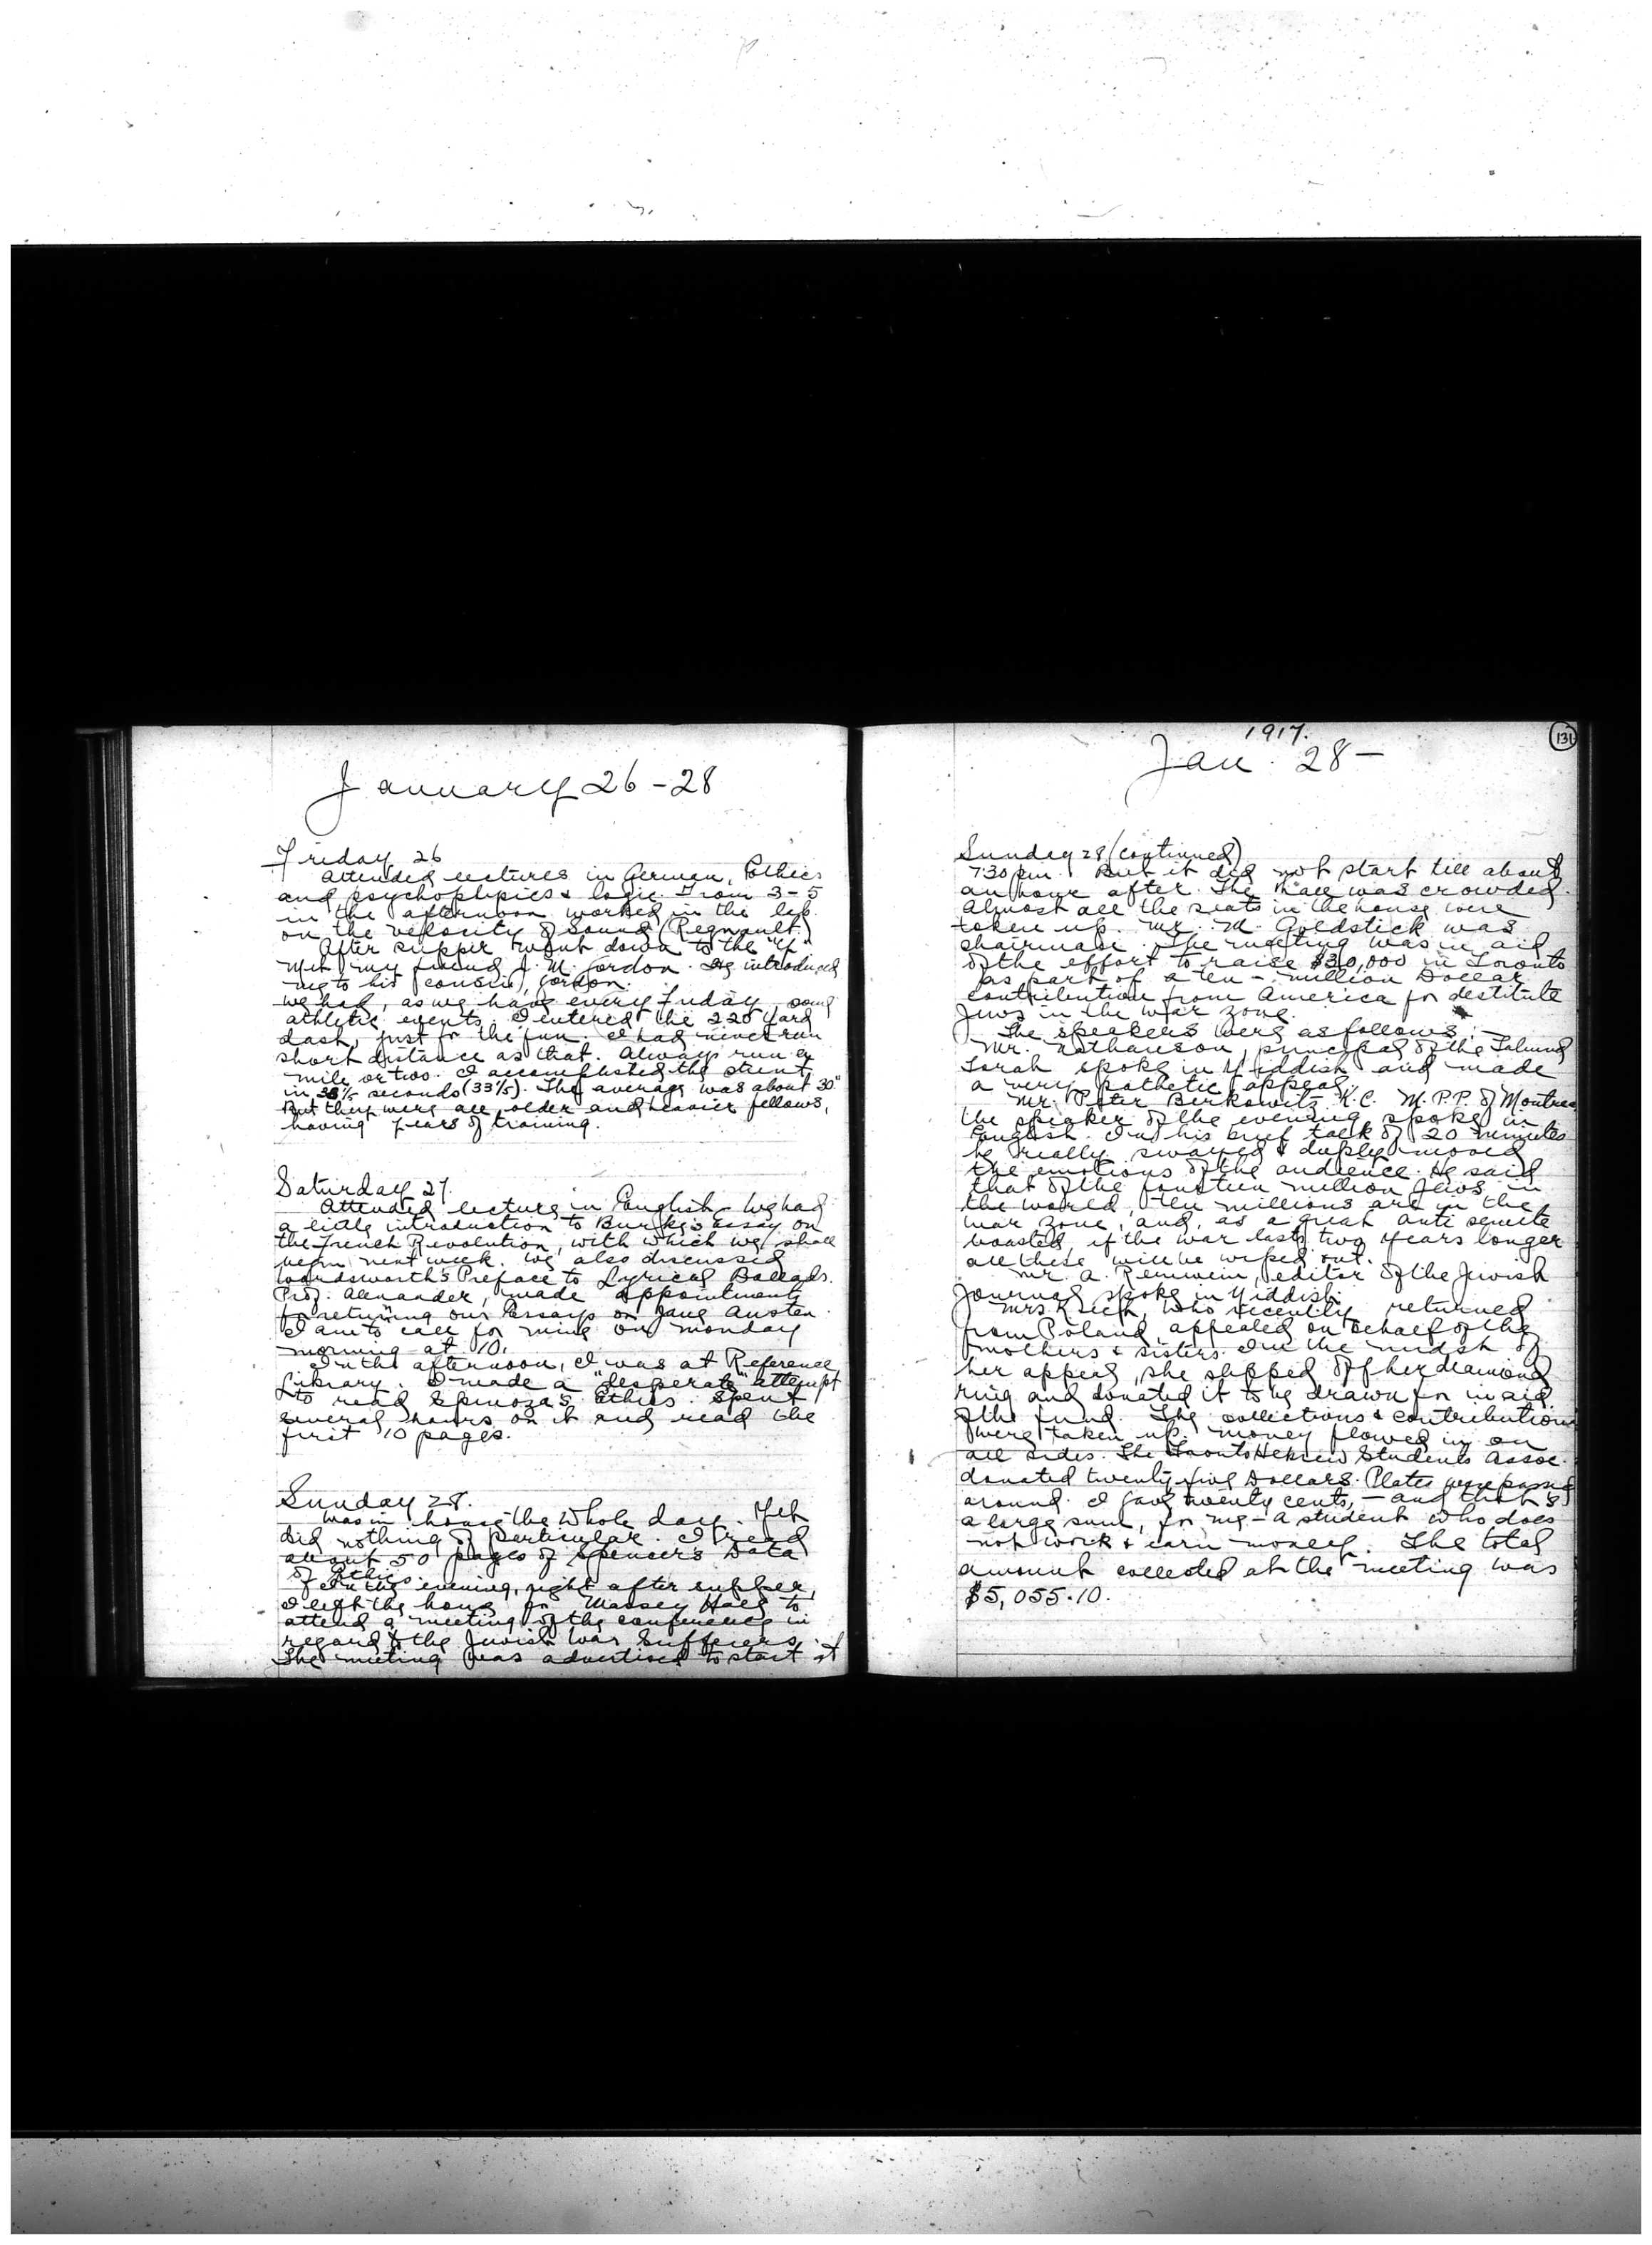 January 26-28
Friday 26
Attended lectures in German, Ethics
and psychophysics & logic. From 3-5
in the afternoon worked in the lab.
on the velocity of sound (Regnault.)
After supper went down to the "Y"
Met my friend J. M. Gordon. He introduced
me to his cousin, Gordon.
We had, as we have every Friday, some
athletic events. I entered the 220 yard
dash, just for the fun. I had never run
short distance as that. Always run a
mile or two. I accomplished the stunt
in 33 1/5 seconds (33 1/5). The average was about 30"
But they were all older and heavier fellows,
having years of training.
Saturday 27.
Attended lecture in English. We had
a little introduction to Burke's essay on
the French Revolution, with which we shall
begin next week. We also discussed
Wordsworth's Preface to Lyrical Ballads.
Prof. Alexander, made appointments
for returning our Essays on Jane Austen.
I am to call for mine on Monday
morning at 10.
In the afternoon, I was at Reference
Library. I made a "desperate" attempt
to read Spinoza's Ethics. Spent
several hours on it and read the
first 10 pages.
Sunday 28.
Was in house the whole day. Yet
did nothing of particular. I read
about 50 pages of Spencer's Data
of Ethics.
In the evening, right after supper,
I left the house for Massey Hall to
attend a meeting of the conference in
regard to the Jewish War Sufferers.
The meeting was advertised to start at
1917.
131
Jan. 28-
Sunday 28 (continued)
7.30 pm. But it did not start till about
an hour after. The hall was crowded.
Almost all the seats in the house were
taken up. Mr. M. Goldstick was
chairman. The meeting was in aid
of the effort to raise $30,000 in Toronto
as part of a ten-million Dollar
contribution from America for destitute
Jews in the war zone.
The speakers were as follows:-
Mr. Nathanson, principal of the Talmud
Torah spoke in Yiddish and made
a very pathetic appeal.
Mr. Peter Berkowitz K.C. M.P.P. of Montreal
the speaker of the evening spoke in
English. In his brief talk of 20 minutes
he really swayed & deeply moved
the emotions of the audience. He said
that of the fourteen million Jews in
the world, ten millions are in the
war zone, and, as a great anti semite
boasted, if the war lasts two years longer
all these will be wiped out.
Mr. A. editor of the Jewish
Journal spoke in Yiddish.
Mrs. who recently returned
from Poland, appealed on behalf of the
mothers & sisters. In the midst of
her appeal, she slipped off her diamond
ring and donated it to be drawn for in aid
of the fund. The collections & contributions
were taken up. Money flowed in on
all sides. The Toronto Hebrew Students Assoc.
donated twenty-five Dollars. Plates were passed
around. I gave twenty cents,- and that's
a large sum, for me - a student who does
not work & earn money. The total
amount collected at the meeting was
$5,055.10.